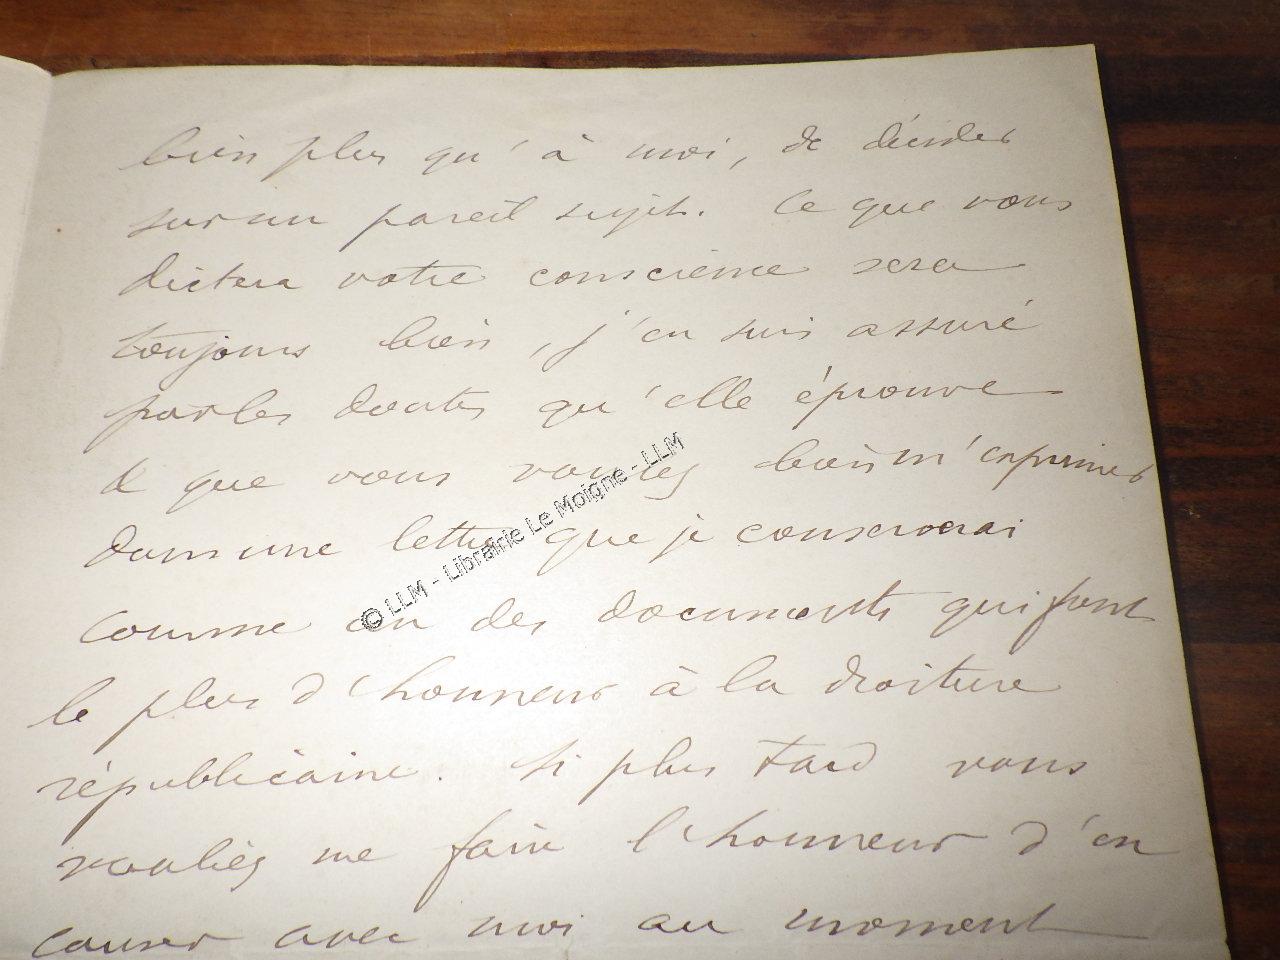 bien plus qu'à moi, de décider
sur un pareil sujet. Ce que vous
dictera votre conscience sera
toujours bien, j'en suis assuré
par les doutes qu'elle éprouve
& que vous voulez bien m'exprimer
dans une lettre que je conserverai
comme un des documents qui font
le plus d'honneur à la droiture
républicaine. Si plus tard vous
vouliez me faire l'honneur d'en
causer avec moi au moment
© LLM - Librairie Le Moigne - LLM